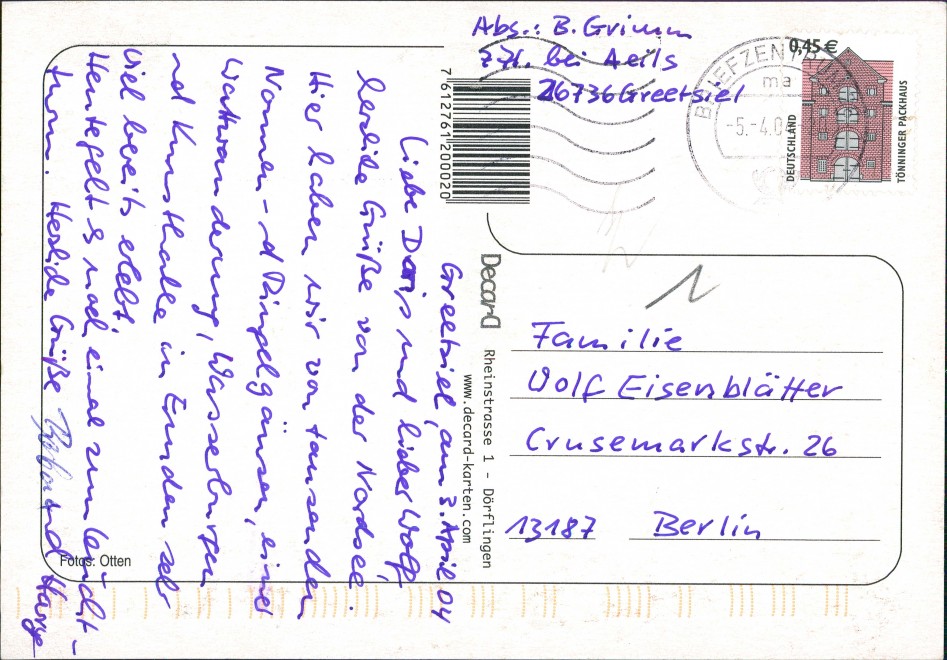 Abs.: B. Grimm
z.Zt. bei Aeils
26736 Greetsiel
BRIEFZENTRUM
ma
-5.-4.04
0,45 €
DEUTSCHLAND
TÖNNINGER PACKHAUS
7612761200020
Greetsiel, am 3. April 04
Liebe Doris und lieber Wolf,
herzliche Grüße von der Nordsee.
Hier haben wir von tausenden
Nonnen- u Ringelgänsen, einer
Wattwanderung, Wasserburgen
und Kunsthalle in Emden sehr
viel bereits erlebt.
Heute geht es noch einmal zum Leucht-
turm. Herzliche Grüße
Fotos: Otten
Decard
Rheinstrasse 1 - Dörflingen
www.decard-karten.com
Familie
Wolf Eisenblätter
Crusemarkstr. 26
13187 Berlin